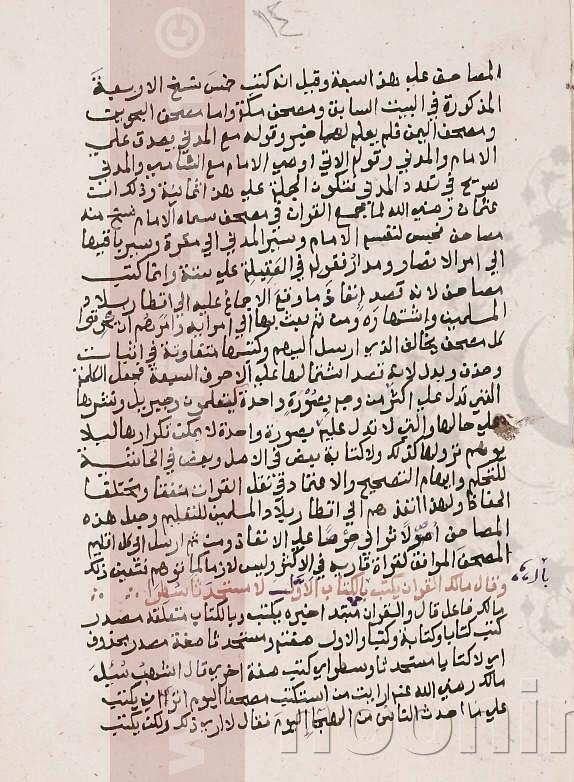 ١٤
المصاحف على هذه السبعة وقيل انه كتب خمس نسخ الاربعة
المذكورة في البيت السابق ومصحف مكة واما مصحف البحرين
ومصحف اليمن فلم يعلم لهما خبر وقوله مع المدني يصدق على
الامام والمدني وقوله الاتي اوصى الامام مع الشامي والمدني
صريح في تعدد المدني فتكون الجملة على هذا ثمانية وذلك ان
عثمان رضي الله لما جمع القران في مصحف سماه الامام نسخ منه
مصاحف فحبس لنفسه الامام وسير المدني الى مكرة وسير باقيها
الى امراء الامصار ومدار نقولهم في العقيلة على ستة وانما كتب
مصاحف لانه قصد انفاذ ما وقع الاجماع عليه الى اقطار بلاد
المسلمين واشتهاره ومن ثم بعث بها الى امرائه وامرهم ان يحرقوا
كل مصحف يخالف الذي ارسل اليهم وكتبها متفاوتة في اثبات
وحذف وبدل لانه قصد اشتمالها على الاحرف السبعة فجعل الكلمة
التي تدل على اكثر من وجه بصورة واحدة كيعلمون وجبريل ونشرها
على حالها والتي لا تدل عليه بصورة واحدة لا يمكن تكرارها ليلا
يوهم نزولها كذلك ولا كتابة بعض في الاصل وبعض في الحاشية
للتحكم وايهام التصحيح والاعتماد في نقل القران متفقا ومختلفا
الحفاظ ولهذا انفذهم الى اقطار بلاد المسلمين للتعليم وجعل هذه
المصاحف اصولا ثواني حرصا على الانفاذ ومن ثم ارسل الى كل اقليم
المصحف الموافق لقراة قاريه في الاكثر وليس لازما كما توهم فتعين ذلك
وقال مالك القران يكتب بالكتاب الاول لا مستحدثا سطرا
مالك فاعل قال والقران مبتدا خبره يكتب وبالكتاب متعلقه مصدر
كتب كتابا وكتابة وكتبا والاول صفته ومستحدثا صفة مصدر محذوف
اي لا كتابا مستحدثا وسطرا اي كتب صفة اخرى قال اشهب سئل
مالك رضي الله عنه ارايت من استكتب مصحفا اليوم اترى ان يكتب
على ما احدث الناس من الهجاء اليوم فقال لا ارى ذلك ولكن يكتب